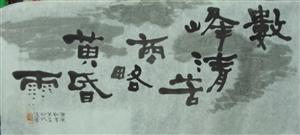 數
峰清苦
商略
黄昏
雨